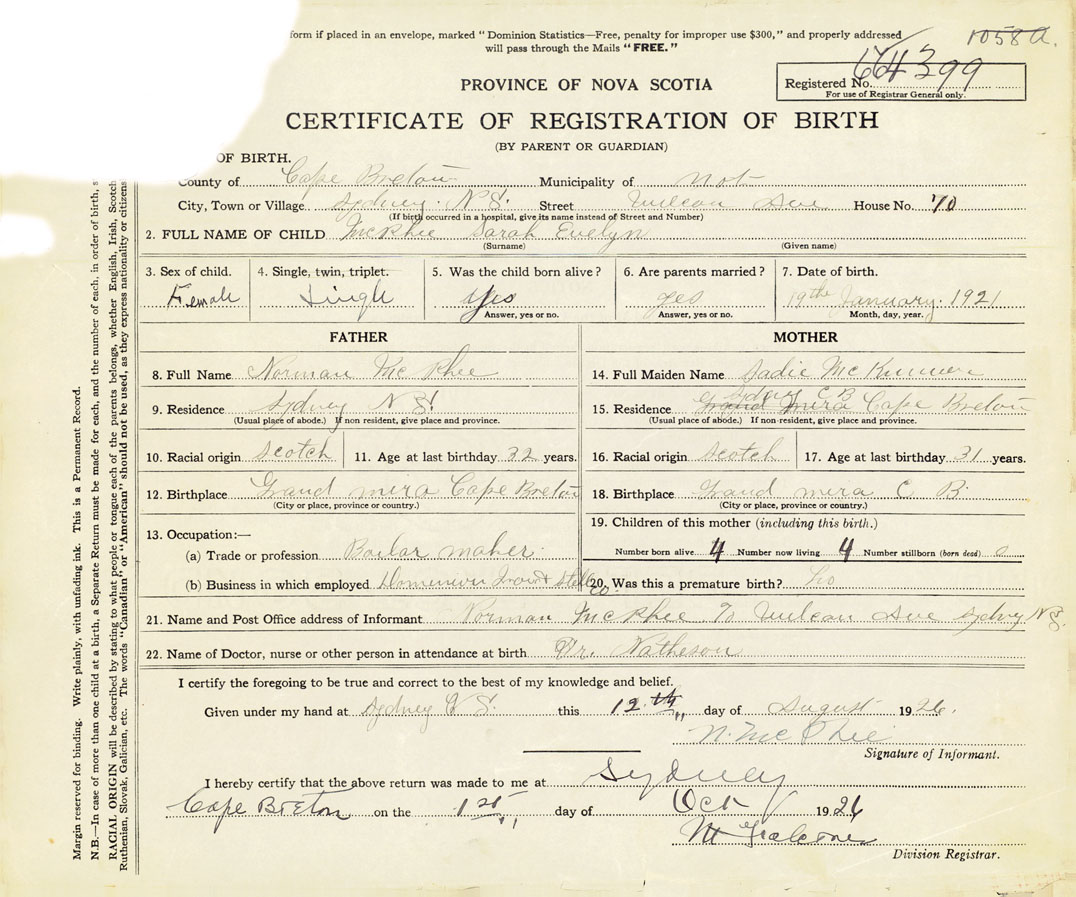 form if placed in an envelope, marked "Dominion Statistics—Free, penalty for improper use $300," and properly addressed
will pass through the Mails "FREE."
1058 a.
PROVINCE OF NOVA SCOTIA
Registered No. 664399
For use of Registrar General only.
CERTIFICATE OF REGISTRATION OF BIRTH
(BY PARENT OR GUARDIAN)
OF BIRTH.
County of Cape Breton Municipality of not
City, Town or Village Sydney N S. Street Vulcan Ave House No. 70
(If birth occurred in a hospital, give its name instead of Street and Number)
2. FULL NAME OF CHILD McPhee Sarah Evelyn
(Surname) (Given name)
3. Sex of child. 4. Single, twin, triplet. 5. Was the child born alive? 6. Are parents married? 7. Date of birth.
Female Single yes yes 19th January. 1921
Answer, yes or no. Answer, yes or no. Month, day, year.
FATHER MOTHER
8. Full Name Norman Mc Phee
14. Full Maiden Name Sadie Mc Kinnon
9. Residence Sydney N S.
(Usual place of abode.) If non resident, give place and province.
Sydney C B
15. Residence Grand mira Cape Breton
(Usual place of abode.) If non-resident, give place and province.
10. Racial origin Scotch 11. Age at last birthday 32 years.
16. Racial origin Scotch 17. Age at last birthday 31 years.
12. Birthplace Grand mira Cape Breton
(City or place, province or country.)
18. Birthplace Grand mira C B.
(City or place, province or country.)
13. Occupation:—
(a) Trade or profession Boilar maker.
(b) Business in which employed Dominion Iron & Steel Co.
19. Children of this mother (including this birth.)
Number born alive 4 Number now living 4 Number stillborn (born dead) 0
20. Was this a premature birth? no
21. Name and Post Office address of Informant Norman McPhee 70 Vulcan Ave Sydney N S.
22. Name of Doctor, nurse or other person in attendance at birth Dr. Matheson
I certify the foregoing to be true and correct to the best of my knowledge and belief.
Given under my hand at Sydney N S. this 12th day of August 1926.
N. McPhee
Signature of Informant.
I hereby certify that the above return was made to me at Sydney
Cape Breton on the 1st day of Oct 1926
Division Registrar.
Margin reserved for binding. Write plainly, with unfading ink. This is a Permanent Record.
N.B.—In case of more than one child at a birth, a Separate Return must be made for each, and the number of each, in order of birth, s
RACIAL ORIGIN will be described by stating to what people or tongue each of the parents belongs, whether English, Irish, Scotch
Ruthenian, Slovak, Galician, etc. The words "Canadian" or "American" should not be used, as they express nationality or citizens